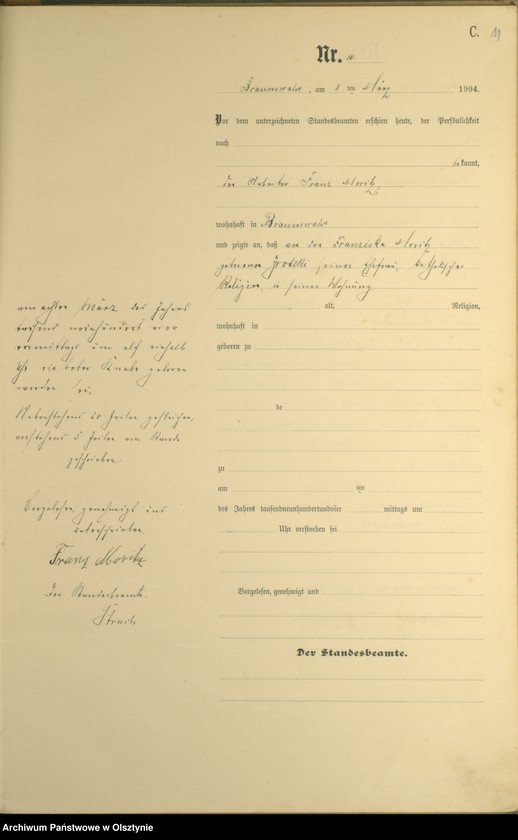 C. 11
Nr. 10
Braunswalde, am 8 ten März 1904.
Vor dem unterzeichneten Standesbeamten erschien heute, der Persönlichkeit
nach
bekannt,
der Arbeiter Franz Moritz,
wohnhaft in Braunswalde
und zeigte an, daß von der Franziska Moritz
geborenen seiner Ehefrau, katholischer
Religion, in seiner Wohnung
alt, Religion,
wohnhaft in
geboren zu
de
zu
am ten
des Jahres tausendneunhundertundvier mittags um
Uhr verstorben sei
Vorgelesen, genehmigt und
Der Standesbeamte.
am achten März des Jahres
tausend neunhundert vier
vormittags um elf einhalb
Uhr ein toter Knabe geboren
worden sei.
Nebenstehend 10 Zeilen gestrichen,
vorstehend 5 Zeilen am Rande
geschrieben
Vorgelesen, genehmigt und
unterschrieben
Franz Moritz
Der Standesbeamte.
Archiwum Państwowe w Olsztynie